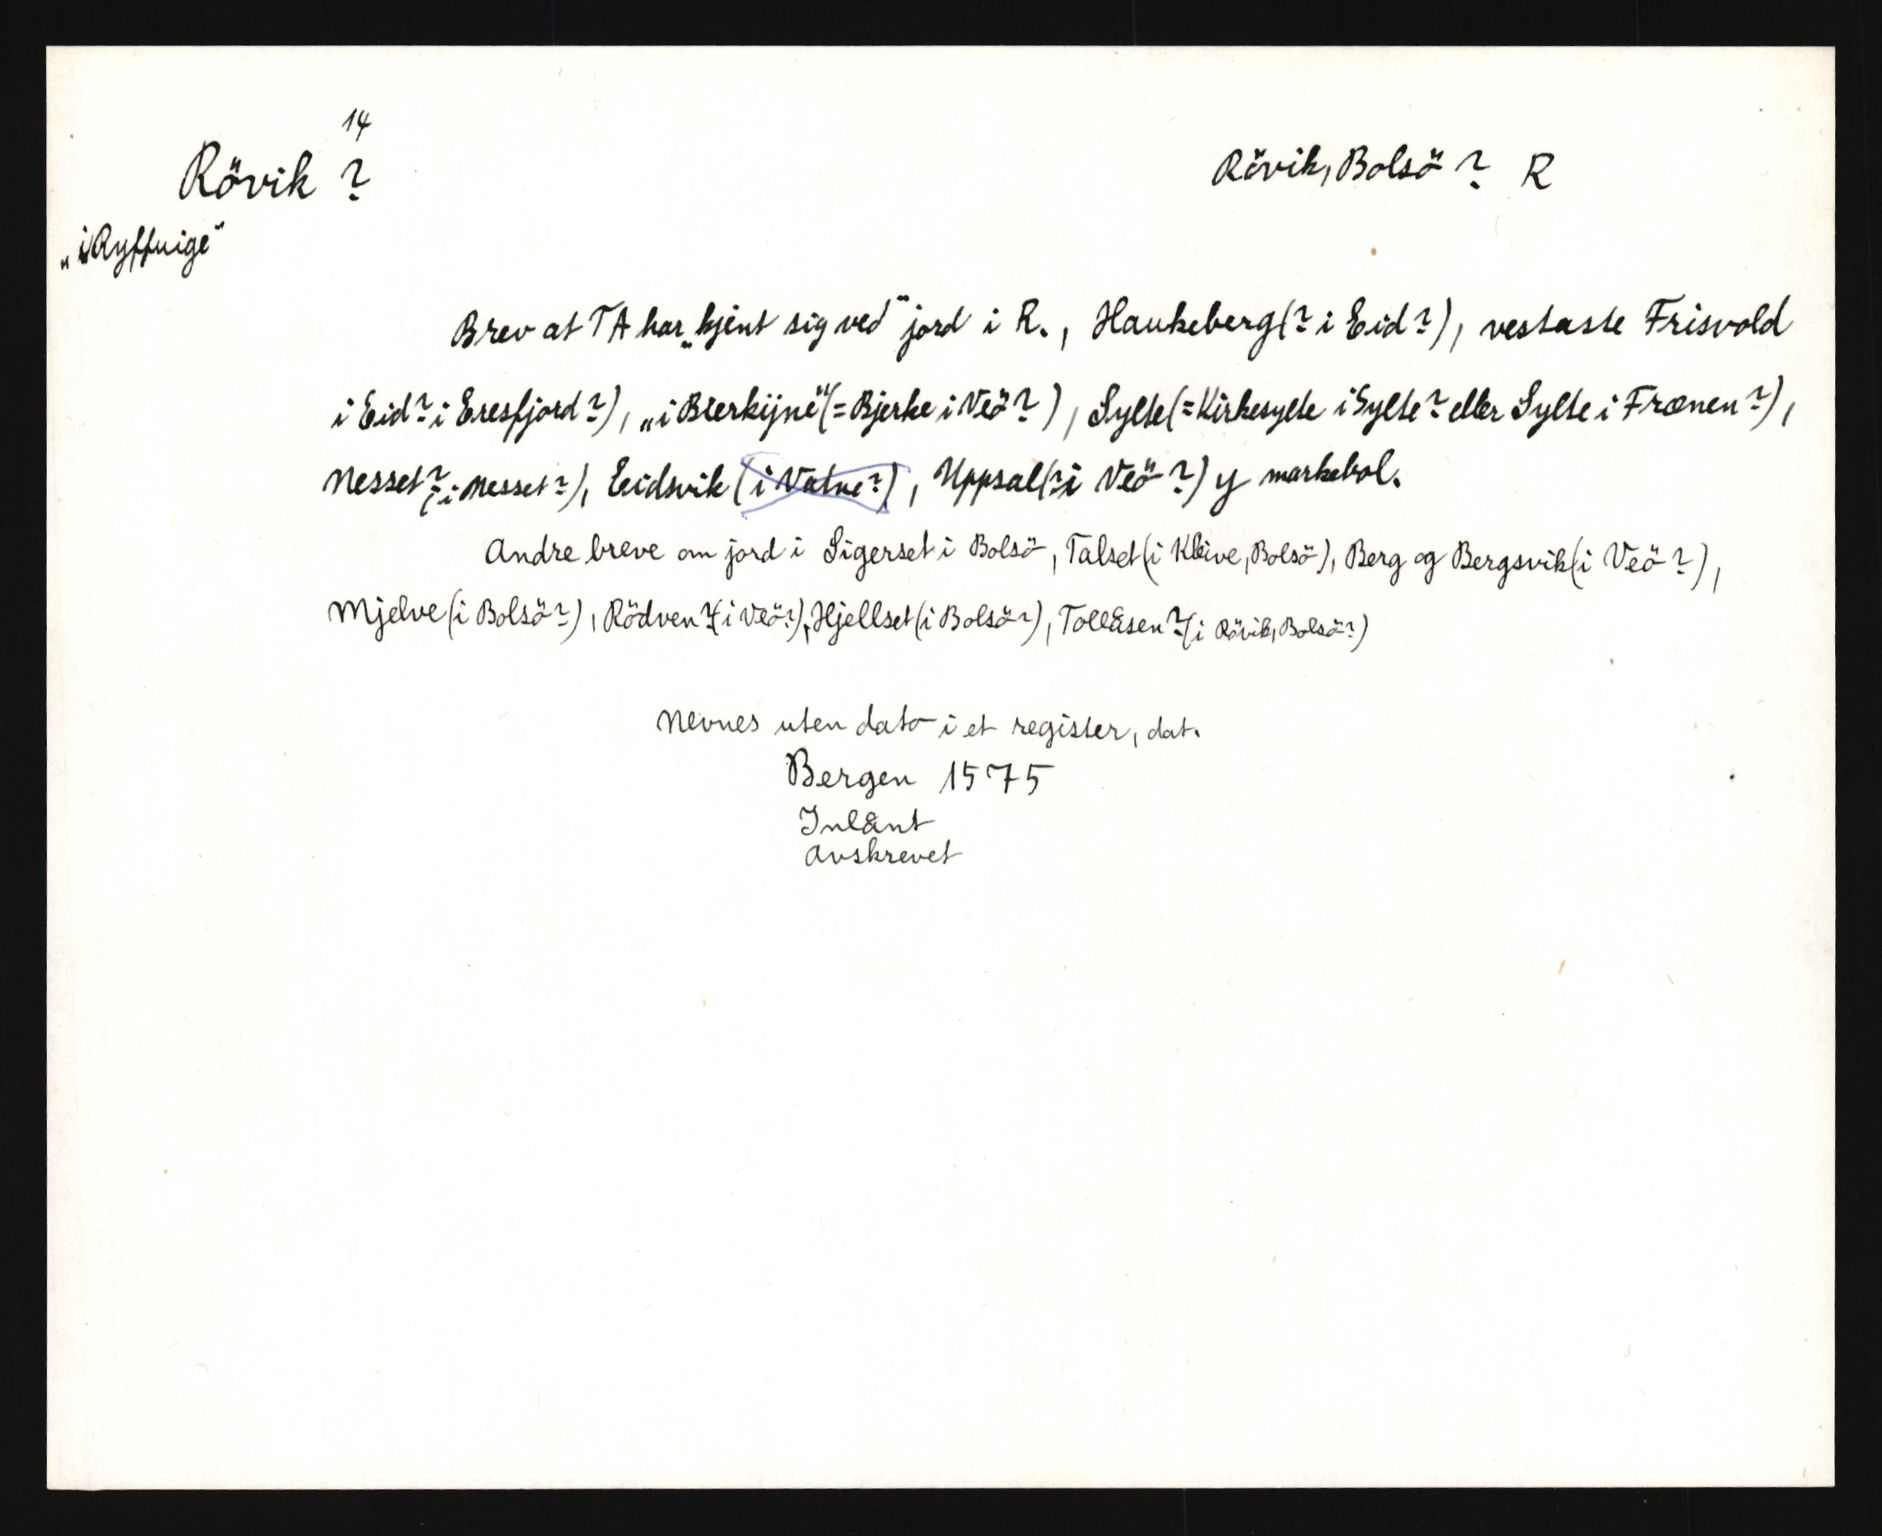 14
Rövik ?
Rövik, Bolsö ? R
„i Ryffuige"
Brev at TA har „kjent sig ved" jord i R., Haukeberg (? i Eid?), vestaste Frisvold
i Eid? i Eresfjord?), „i Bierkijne" (= Bjerke i Veö?), Sylte (= Kirkesylte i Sylte? eller Sylte i Frænen?),
Nesset? (i Nesset?), Eidsvik (i Vatne?), Uppsal (? i Veö?) y markebol.
Andre breve om jord i Sigerset i Bolsö, Talset (i Kleive, Bolsö), Berg og Bergsvik (i Veö?),
Mjelve (i Bolsö?), Rödven? (i Veö?), Hjellset (i Bolsö?), Tollåsen? (i Rövik, Bolsö?)
Nevnes uten dato i et register, dat.
Bergen 1575
Inlånt
Avskrevet